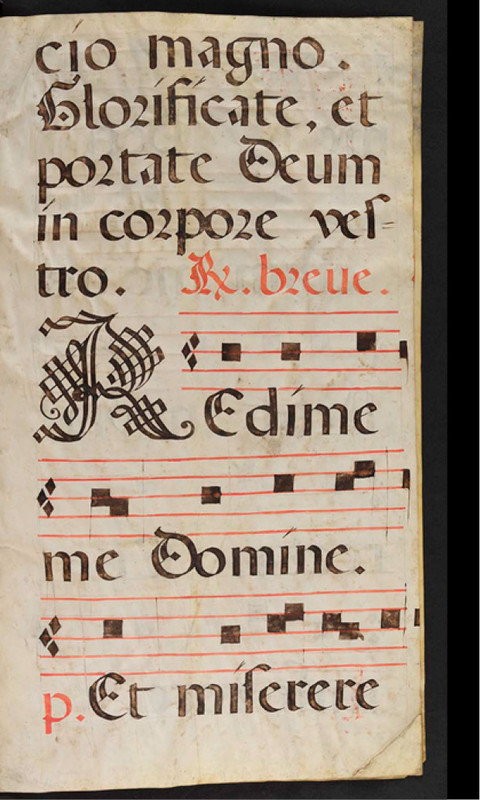 cio magno.
Glorificate, et
portate Deum
in corpore ves-
tro. R. breue.
REdime
me Domine.
p. Et miserere